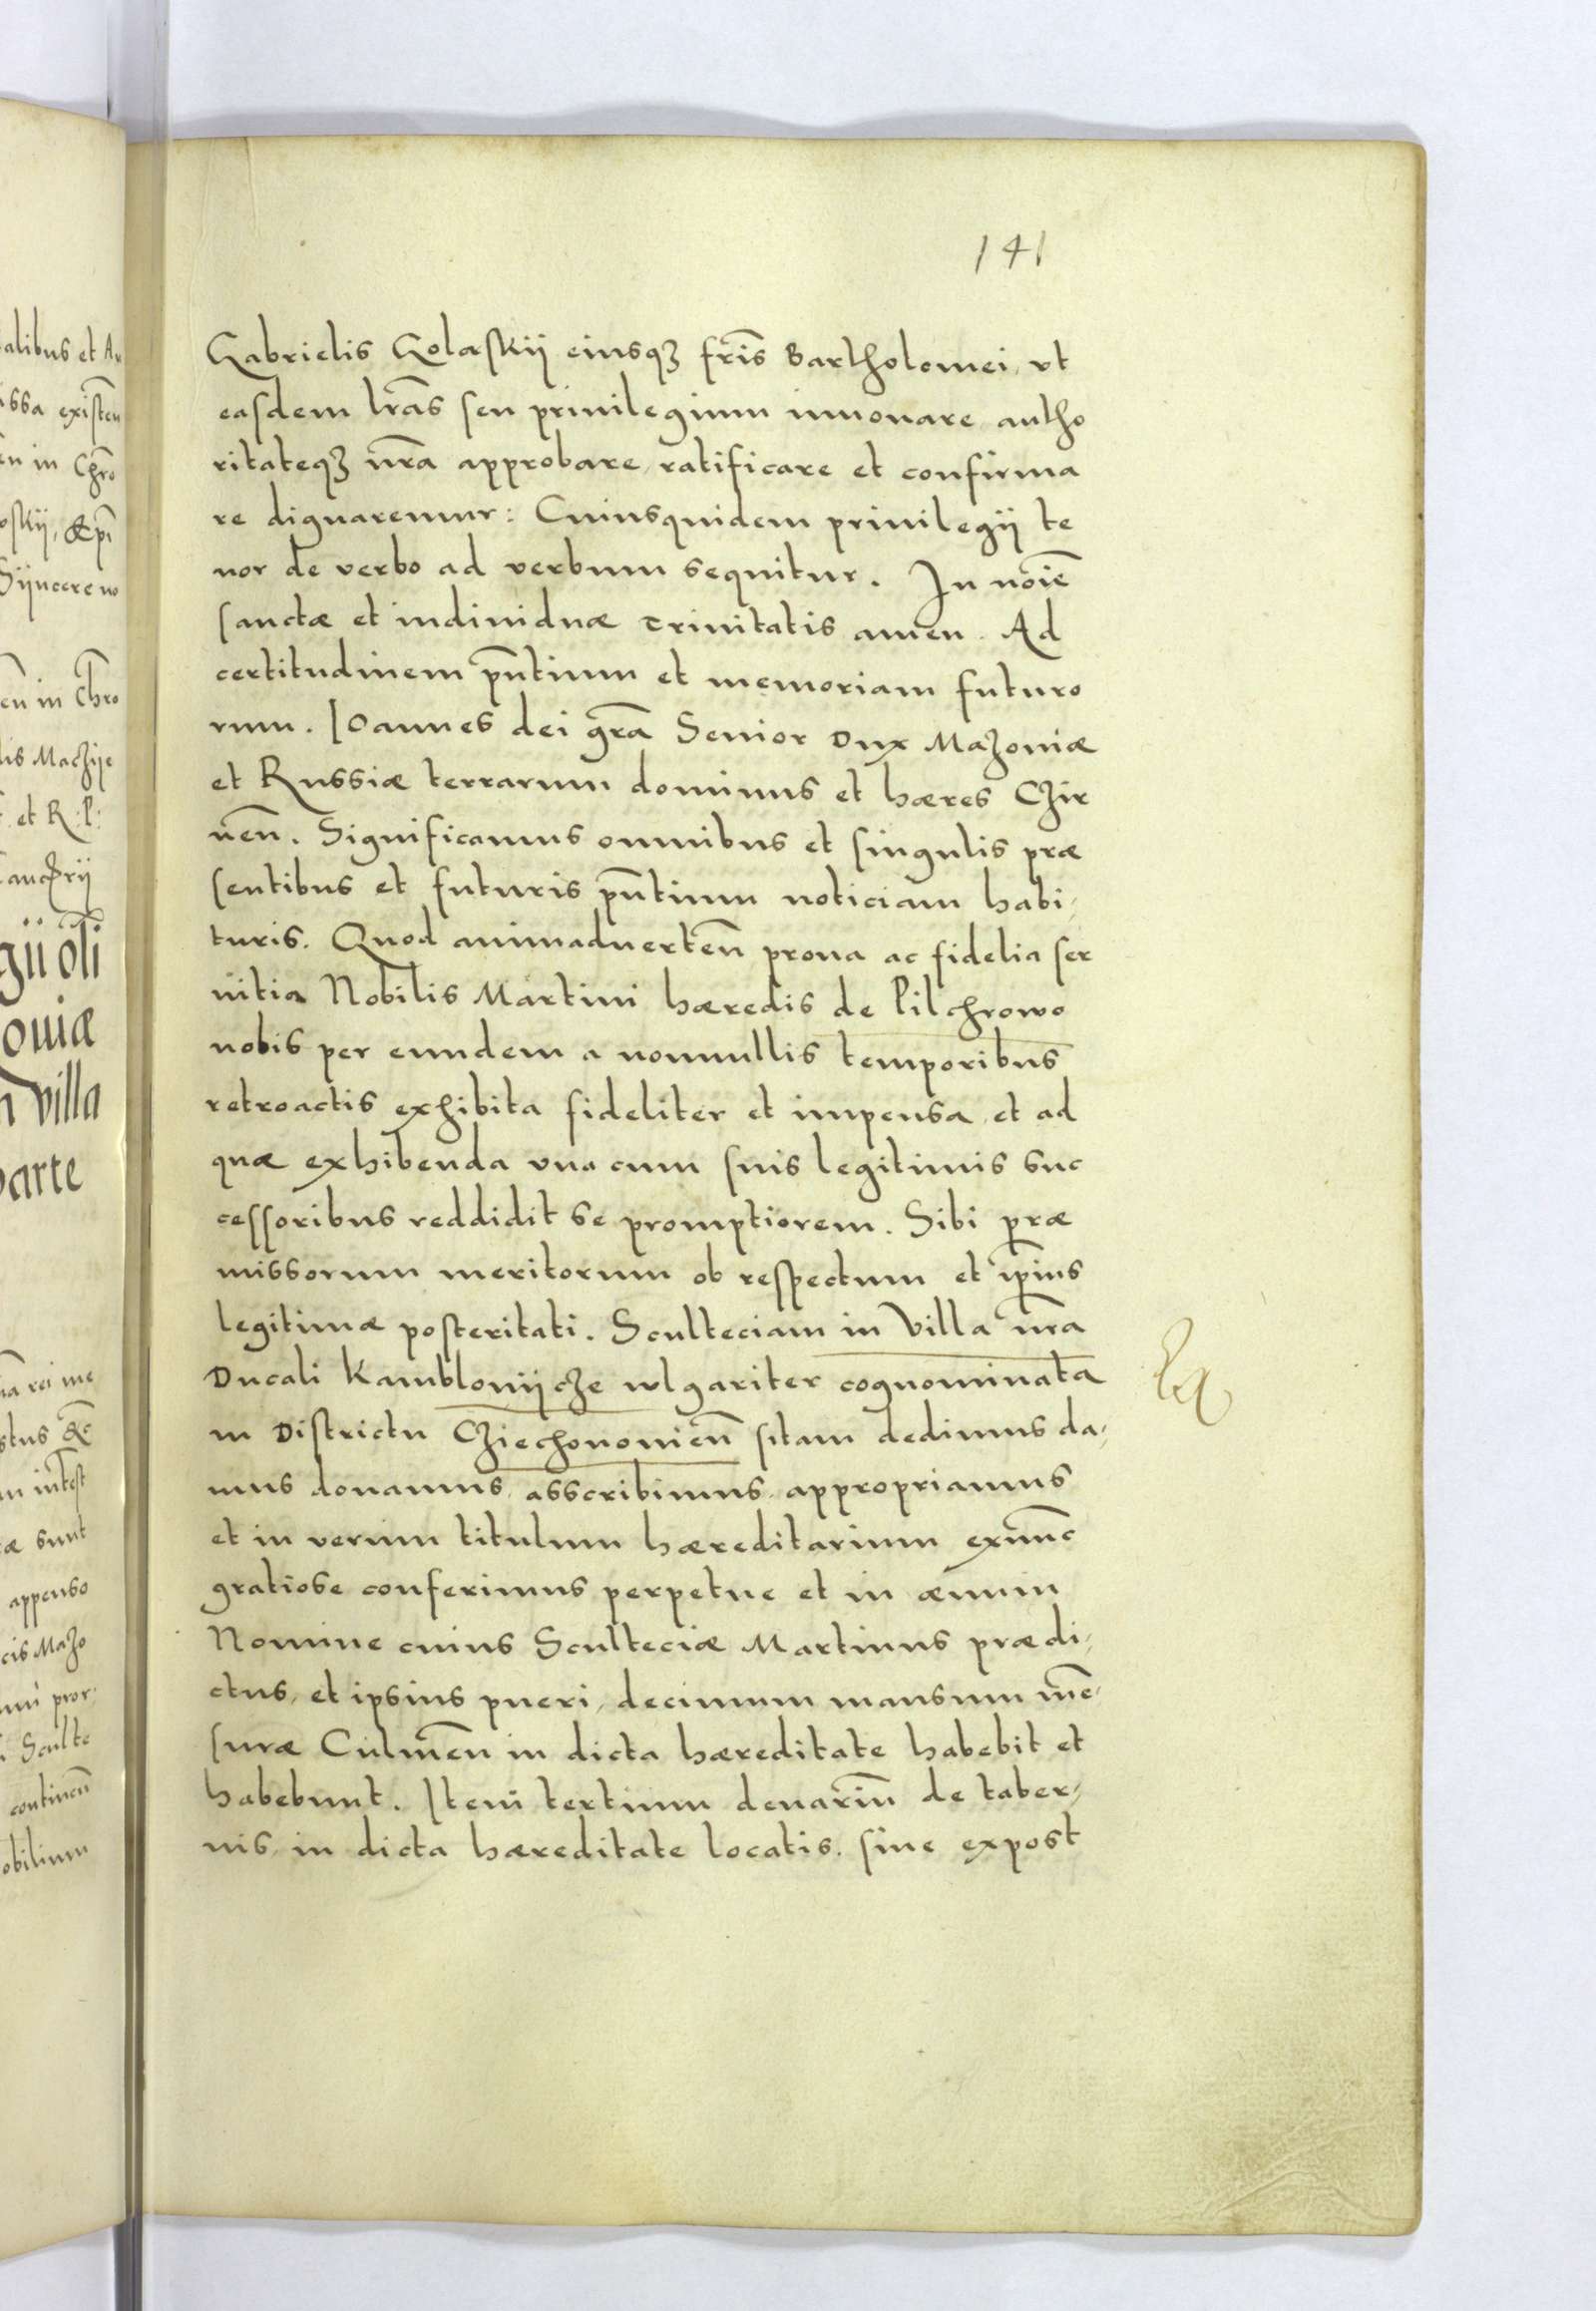 141
Gabrielis Golaskij eiusqȝ fr̃is Bartholomei, vt
easdem lr̃as seu priuilegium innouare autho
ritateqȝ nr̃a approbare, ratificare et confirma
re dignaremur: Cuiusquidem priuilegij te
nor de verbo ad verbum sequitur. In noĩe
sanctæ et indiuiduæ Trinitatis amen. Ad
certitudinem pñtium et memoriam futuro
rum. Ioannes dei gr̃a Senior Dux Mazouiæ
et Russiæ terrarum dominus et hæres Czir
neñ. Significamus omnibus et singulis præ
sentibus et futuris pñtium noticiam habi,
turis. Quod animaduerteñ prona ac fidelia ser
uitia Nobilis Martini hæredis de Pilchrowo
nobis per eundem a nonnullis temporibus
retroactis exhibita fideliter et impensa, et ad
quæ exhibenda vna cum suis legitimis suc
cessoribus reddidit se promptiorem. Sibi præ
missorum meritorum ob respectum et ip̃ius
legitimæ posteritati. Sculteciam in Villa nr̃a
Ducali Kamblonijcze wlgariter cognominata
in Districtu Cziechonouieñ sitam dedimus da,
mus donamus, asscribimus, appropriamus
et in verum titulum hæreditarium exnunc
gratiose conferimus perpetue et in æuum
Nomine cuius Sculteciæ Martinus prædi,
ctus, et ipsius pueri, decimum mansum me,
suræ Culmeñ in dicta hæreditate habebit et
habebunt. Item tertium denariũ de taber,
nis, in dicta hæreditate locatis. siue expost
alibus et
assa existen
en in Chr̃o
oskij,
Sijncere no
en in Chr̃o
lis Maczije
et R: P:
gij oli
ouiæ
villa
parte
rei me
stus
æ sunt
appenso
cis Mazo
Sculte
continen
obilium